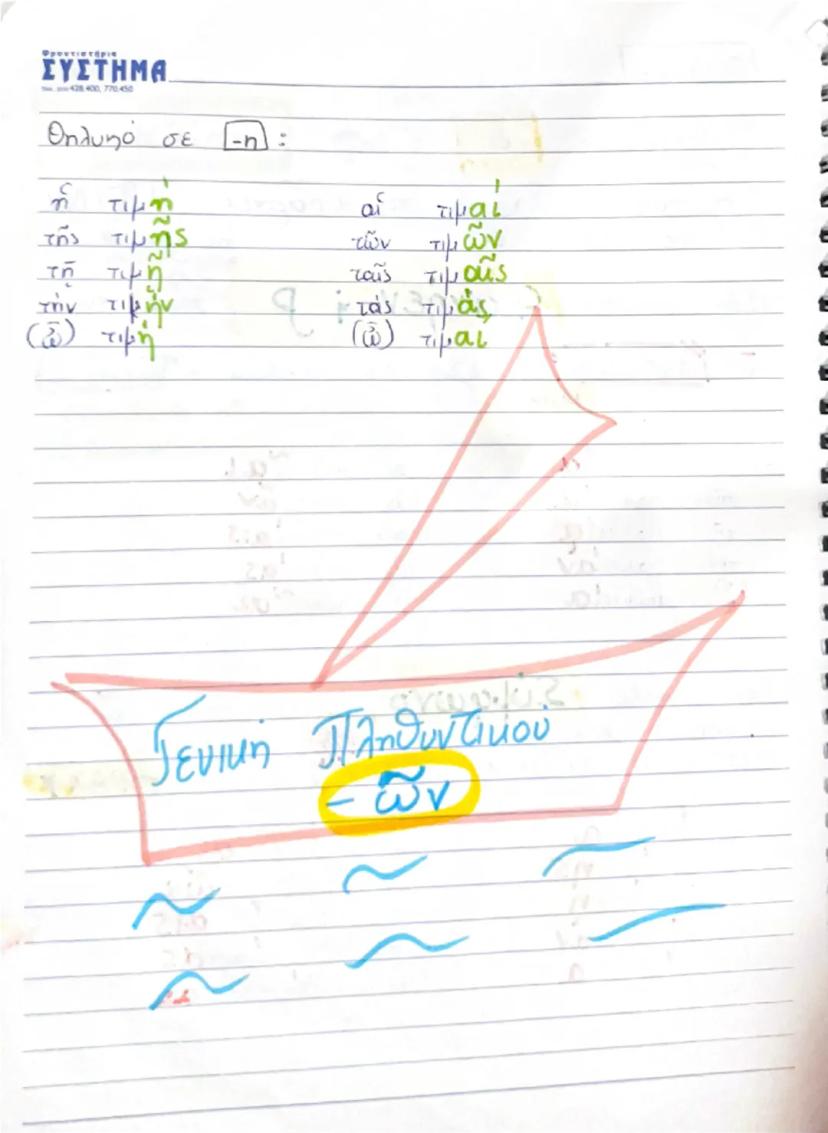 Φροντιστήρια
ΣΥΣΤΗΜΑ
428.400, 770.450
Θηλυκό σε -η :
ἡ τιμή αἱ τιμαί
τῆς τιμῆς τῶν τιμῶν
τῇ τιμῇ ταῖς τιμαῖς
τὴν τιμήν τάς τιμάς
(ὦ) τιμή (ὦ) τιμαί
Γενική Πληθυντικού
- ῶν